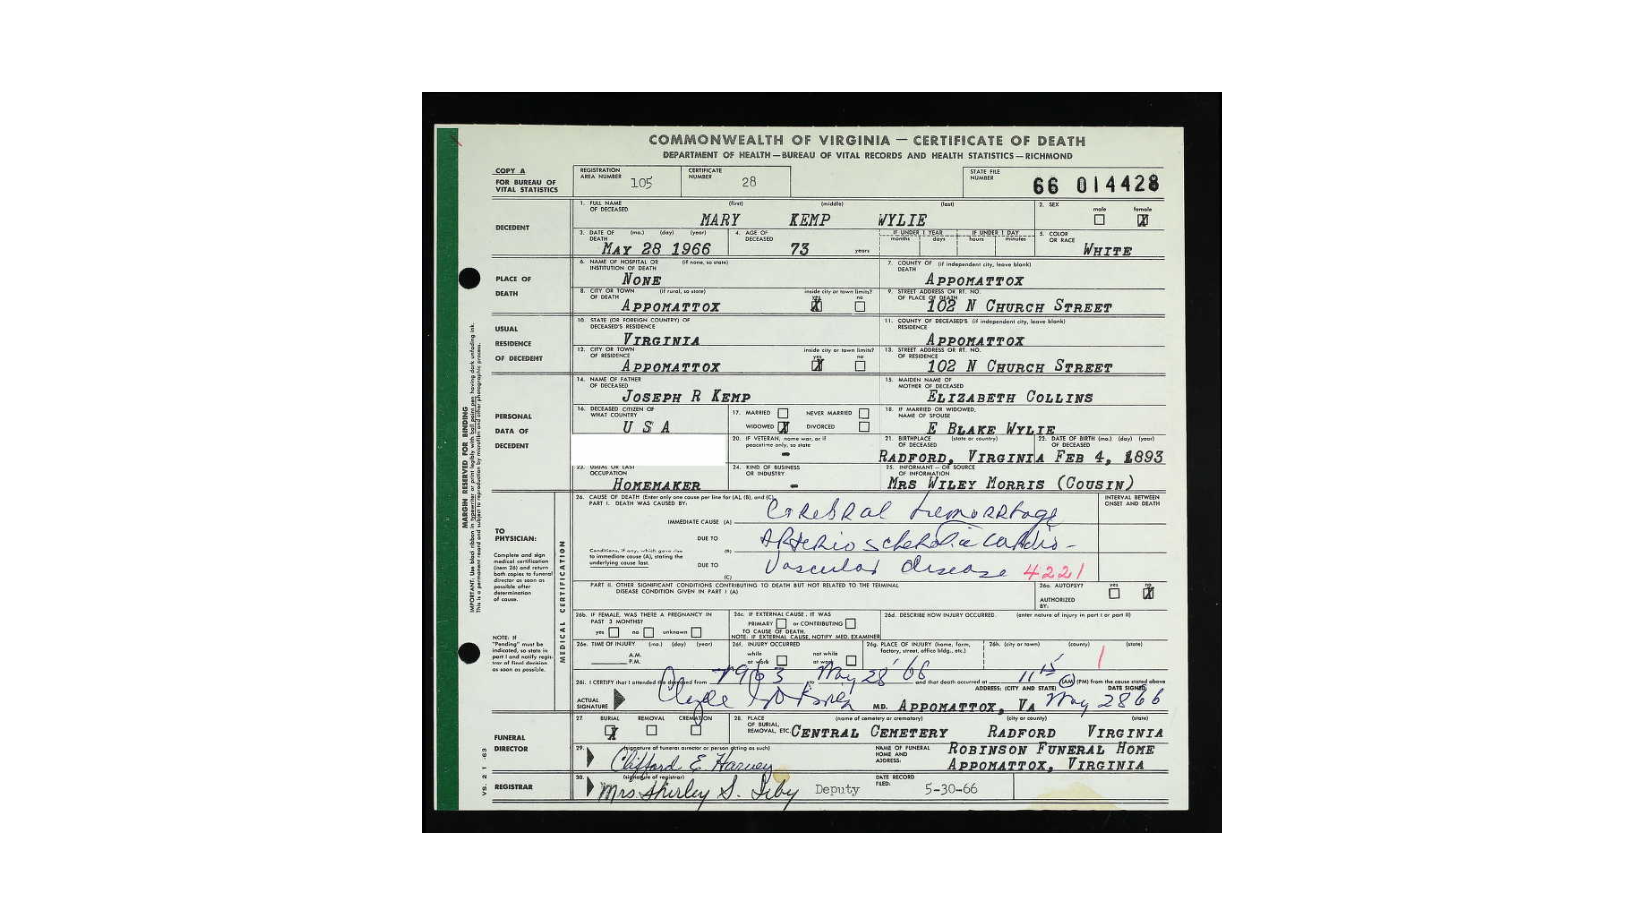 COMMONWEALTH OF VIRGINIA — CERTIFICATE OF DEATH
DEPARTMENT OF HEALTH — BUREAU OF VITAL RECORDS AND HEALTH STATISTICS — RICHMOND
COPY A
FOR BUREAU OF VITAL STATISTICS
REGISTRATION AREA NUMBER 105
CERTIFICATE NUMBER 28
STATE FILE NUMBER 66 014428
DECEDENT
1. FULL NAME OF DECEASED (first) (middle) (last)
MARY KEMP WYLIE
2. SEX male female X
3. DATE OF DEATH (mo.) (day) (year)
MAY 28 1966
4. AGE OF DECEASED 73 years
IF UNDER 1 YEAR months days
IF UNDER 1 DAY hours minutes
5. COLOR OR RACE WHITE
PLACE OF DEATH
6. NAME OF HOSPITAL OR INSTITUTION OF DEATH (if none, so state)
NONE
7. COUNTY OF DEATH (if independent city, leave blank)
APPOMATTOX
8. CITY OR TOWN OF DEATH (if rural, so state)
APPOMATTOX
inside city or town limits? yes X no
9. STREET ADDRESS OR RT. NO. OF PLACE OF DEATH
102 N CHURCH STREET
USUAL RESIDENCE OF DECEDENT
10. STATE (OR FOREIGN COUNTRY) OF DECEASED'S RESIDENCE
VIRGINIA
11. COUNTY OF DECEASED'S RESIDENCE (if independent city, leave blank)
APPOMATTOX
12. CITY OR TOWN OF RESIDENCE
APPOMATTOX
inside city or town limits? yes X no
13. STREET ADDRESS OR RT. NO. OF RESIDENCE
102 N CHURCH STREET
PERSONAL DATA OF DECEDENT
14. NAME OF FATHER OF DECEASED
JOSEPH R KEMP
15. MAIDEN NAME OF MOTHER OF DECEASED
ELIZABETH COLLINS
16. DECEASED CITIZEN OF WHAT COUNTRY
U S A
17. MARRIED NEVER MARRIED
WIDOWED X DIVORCED
18. IF MARRIED OR WIDOWED, NAME OF SPOUSE
E BLAKE WYLIE
20. IF VETERAN, name war, or if peacetime only, so state
-
21. BIRTHPLACE OF DECEASED (state or country)
RADFORD, VIRGINIA
22. DATE OF BIRTH (mo.) (day) (year)
FEB 4, 1893
23. USUAL OR LAST OCCUPATION
HOMEMAKER
24. KIND OF BUSINESS OR INDUSTRY
-
25. INFORMANT — OR SOURCE OF INFORMATION
MRS WILEY MORRIS (COUSIN)
MARGIN RESERVED FOR BINDING
TO PHYSICIAN:
Complete and sign medical certification (item 26) and return both copies to funeral director as soon as possible after determination of cause.
NOTE: If "Pending" must be indicated, so state in part I and notify registrar of final decision as soon as possible.
MEDICAL CERTIFICATION
26. CAUSE OF DEATH (Enter only one cause per line for (A), (B), and (C)
PART I. DEATH WAS CAUSED BY:
INTERVAL BETWEEN ONSET AND DEATH
IMMEDIATE CAUSE (A) Cerebral hemorrhage
DUE TO
Conditions, if any, which gave rise to immediate cause (A), stating the underlying cause last.
(B) Arteriosclerotic cardio-
DUE TO
(C) Vascular disease 4221
PART II. OTHER SIGNIFICANT CONDITIONS CONTRIBUTING TO DEATH BUT NOT RELATED TO THE TERMINAL DISEASE CONDITION GIVEN IN PART I (A)
26a. AUTOPSY? yes no X
AUTHORIZED BY:
26b. IF FEMALE, WAS THERE A PREGNANCY IN PAST 3 MONTHS?
yes no unknown
26c. IF EXTERNAL CAUSE, IT WAS
PRIMARY or CONTRIBUTING
TO CAUSE OF DEATH.
NOTE: IF EXTERNAL CAUSE, NOTIFY MED. EXAMINER
26d. DESCRIBE HOW INJURY OCCURRED. (enter nature of injury in part I or part II)
26e. TIME OF INJURY (mo.) (day) (year)
A.M.
P.M.
26f. INJURY OCCURRED
while at work not while at work
26g. PLACE OF INJURY (home, farm, factory, street, office bldg., etc.)
26h. (city or town) (county) (state)
26i. I CERTIFY that I attended the deceased from 1963 to May 28 '66 and that death occurred at 11 15 (AM) (PM) from the cause stated above
ACTUAL SIGNATURE Clyde
M.D.
ADDRESS: (CITY AND STATE) APPOMATTOX, VA
DATE SIGNED: May 28 66
FUNERAL DIRECTOR
27. BURIAL X REMOVAL CREMATION
28. PLACE OF BURIAL, REMOVAL, ETC. (name of cemetery or crematory) (city or county) (state)
CENTRAL CEMETERY RADFORD VIRGINIA
29. (signature of funeral director or person acting as such)
Clifford E. Harvey
NAME OF FUNERAL HOME AND ADDRESS:
ROBINSON FUNERAL HOME
APPOMATTOX, VIRGINIA
REGISTRAR
30. (signature of registrar)
Mrs. Shirley S. Deputy
DATE RECORD FILED: 5-30-66